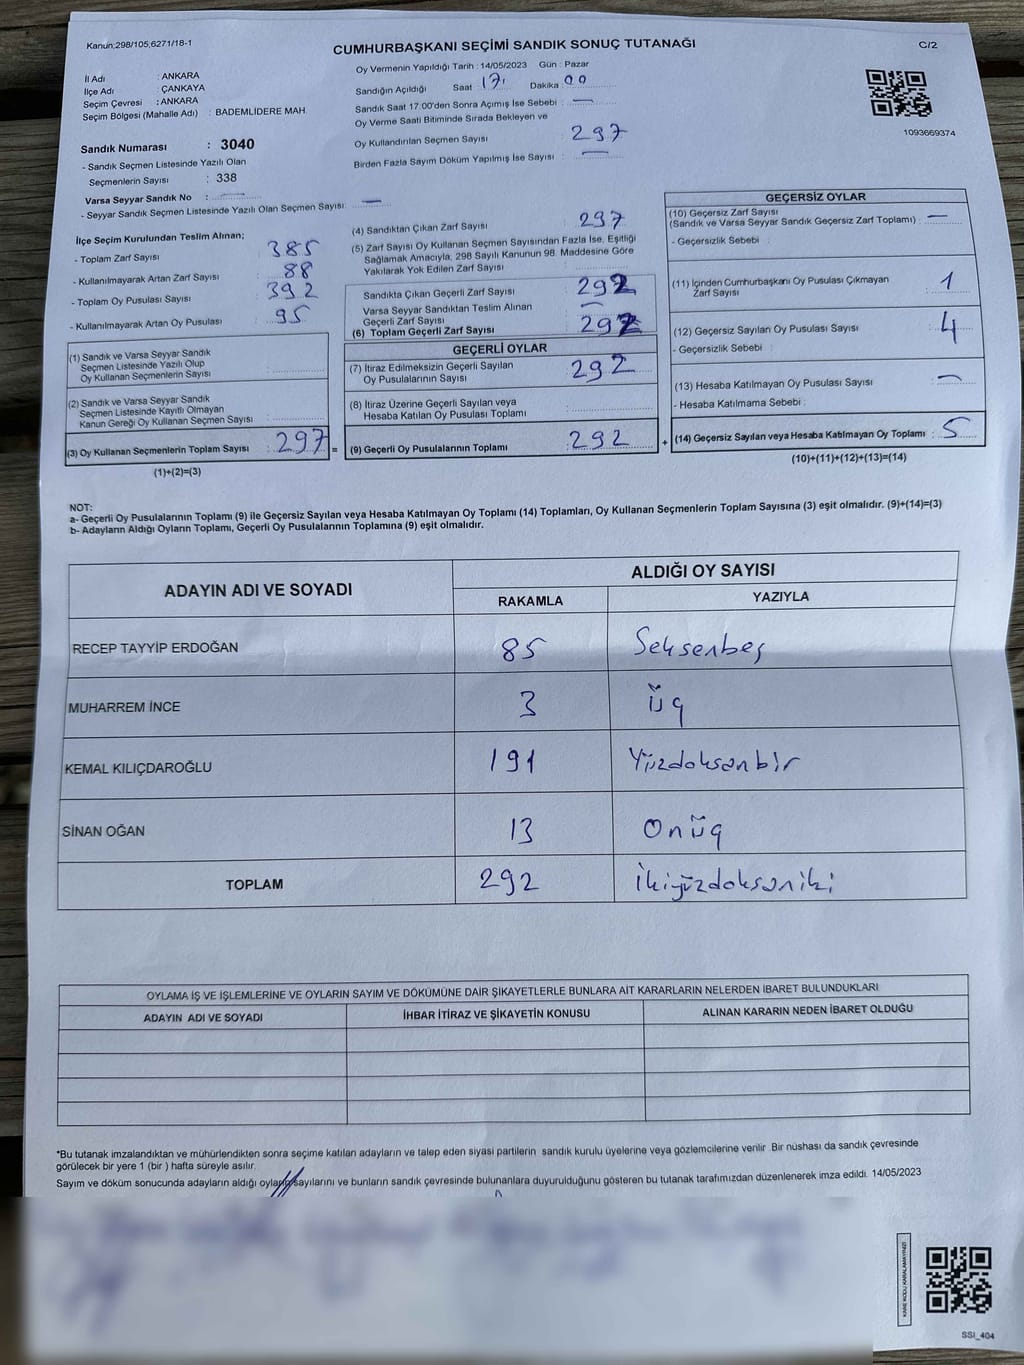 Kanun;298/105;6271/18-1
CUMHURBAŞKANI SEÇİMİ SANDIK SONUÇ TUTANAĞI
C/2
İl Adı : ANKARA
İlçe Adı : ÇANKAYA
Seçim Çevresi : ANKARA
Seçim Bölgesi (Mahalle Adı) : BADEMLİDERE MAH.
Oy Vermenin Yapıldığı Tarih : 14/05/2023 Gün : Pazar
Sandığın Açıldığı Saat 17 Dakika 00
Sandık Saat 17:00'den Sonra Açımış İse Sebebi : —
Oy Verme Saati Bitiminde Sırada Bekleyen ve
Oy Kullandırılan Seçmen Sayısı : 297
Birden Fazla Sayım Döküm Yapılmış İse Sayısı : —
1093669374
Sandık Numarası : 3040
- Sandık Seçmen Listesinde Yazılı Olan
Seçmenlerin Sayısı : 338
Varsa Seyyar Sandık No : —
- Seyyar Sandık Seçmen Listesinde Yazılı Olan Seçmen Sayısı: —
İlçe Seçim Kurulundan Teslim Alınan;
- Toplam Zarf Sayısı : 385
- Kullanılmayarak Artan Zarf Sayısı : 88
- Toplam Oy Pusulası Sayısı : 392
- Kullanılmayarak Artan Oy Pusulası : 95
(1) Sandık ve Varsa Seyyar Sandık
Seçmen Listesinde Yazılı Olup
Oy Kullanan Seçmenlerin Sayısı :
(2) Sandık ve Varsa Seyyar Sandık
Seçmen Listesinde Kayıtlı Olmayan
Kanun Gereği Oy Kullanan Seçmen Sayısı :
(3) Oy Kullanan Seçmenlerin Toplam Sayısı : 297 =
(1)+(2)=(3)
(4) Sandıktan Çıkan Zarf Sayısı : 297
(5) Zarf Sayısı Oy Kullanan Seçmen Sayısından Fazla İse, Eşitliği
Sağlamak Amacıyla, 298 Sayılı Kanunun 98. Maddesine Göre
Yakılarak Yok Edilen Zarf Sayısı :
Sandıkta Çıkan Geçerli Zarf Sayısı : 292
Varsa Seyyar Sandıktan Teslim Alınan
Geçerli Zarf Sayısı : —
(6) Toplam Geçerli Zarf Sayısı : 292
GEÇERLİ OYLAR
(7) İtiraz Edilmeksizin Geçerli Sayılan
Oy Pusulalarının Sayısı : 292
(8) İtiraz Üzerine Geçerli Sayılan veya
Hesaba Katılan Oy Pusulası Toplamı :
(9) Geçerli Oy Pusulalarının Toplamı : 292 +
GEÇERSİZ OYLAR
(10) Geçersiz Zarf Sayısı
(Sandık ve Varsa Seyyar Sandık Geçersiz Zarf Toplamı) : —
- Geçersizlik Sebebi :
(11) İçinden Cumhurbaşkanı Oy Pusulası Çıkmayan
Zarf Sayısı : 1
(12) Geçersiz Sayılan Oy Pusulası Sayısı : 4
- Geçersizlik Sebebi :
(13) Hesaba Katılmayan Oy Pusulası Sayısı : —
- Hesaba Katılmama Sebebi :
(14) Geçersiz Sayılan veya Hesaba Katılmayan Oy Toplamı : 5
(10)+(11)+(12)+(13)=(14)
NOT:
a- Geçerli Oy Pusulalarının Toplamı (9) ile Geçersiz Sayılan veya Hesaba Katılmayan Oy Toplamı (14) Toplamları, Oy Kullanan Seçmenlerin Toplam Sayısına (3) eşit olmalıdır. (9)+(14)=(3)
b- Adayların Aldığı Oyların Toplamı, Geçerli Oy Pusulalarının Toplamına (9) eşit olmalıdır.
ADAYIN ADI VE SOYADI
ALDIĞI OY SAYISI
RAKAMLA YAZIYLA
RECEP TAYYİP ERDOĞAN 85 Seksenbeş
MUHARREM İNCE 3 üç
KEMAL KILIÇDAROĞLU 191 Yüzdoksanbir
SİNAN OĞAN 13 Onüç
TOPLAM 292 İkiyüzdoksaniki
OYLAMA İŞ VE İŞLEMLERİNE VE OYLARIN SAYIM VE DÖKÜMÜNE DAİR ŞİKAYETLERLE BUNLARA AİT KARARLARIN NELERDEN İBARET BULUNDUKLARI
ADAYIN ADI VE SOYADI İHBAR İTİRAZ VE ŞİKAYETİN KONUSU ALINAN KARARIN NEDEN İBARET OLDUĞU
*Bu tutanak imzalandıktan ve mühürlendikten sonra seçime katılan adayların ve talep eden siyasi partilerin sandık kurulu üyelerine veya gözlemcilerine verilir. Bir nüshası da sandık çevresinde
görülecek bir yere 1 (bir ) hafta süreyle asılır.
Sayım ve döküm sonucunda adayların aldığı oyların sayılarını ve bunların sandık çevresinde bulunanlara duyurulduğunu gösteren bu tutanak tarafımızdan düzenlenerek imza edildi. 14/05/2023
KARE KODU KARALAMAYINIZ!
SSI_404